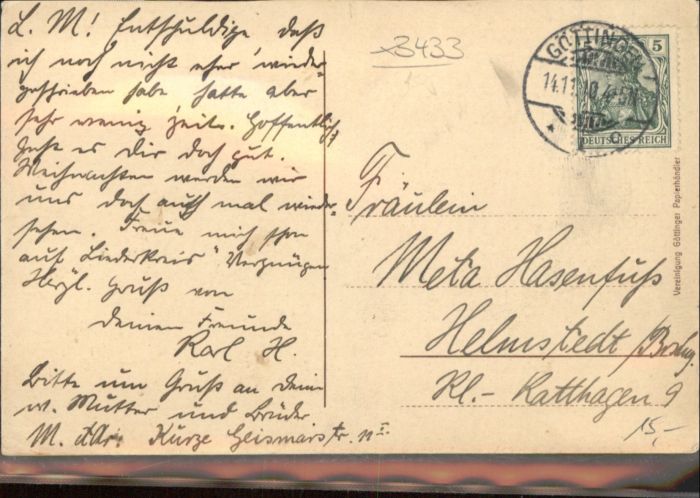 L. M.! Entschuldige daß
ich noch nicht eher wieder
geschrieben habe hatte aber
sehr wenig Zeit. Hoffentlich
geht es Dir doch gut.
Weihnachten werden wir
uns doch auch mal wieder-
sehen. Freue mich schon
auf Liederkreis "Vergnügen
Herzl. Gruß von
deinem Freunde
Karl H.
Bitte um Gruß an deine
w. Mutter und Brüder
M. Adr: Kurze Geismarstr. 11 I.
3433
GÖTTINGEN
14.11.10. 4-5N
c
5
DEUTSCHES REICH
Fräulein
Meta Hasenfuß
Helmstedt /Brschg.
Kl.- Katthagen 9
15,-
Vereinigung Göttinger Papierhändler